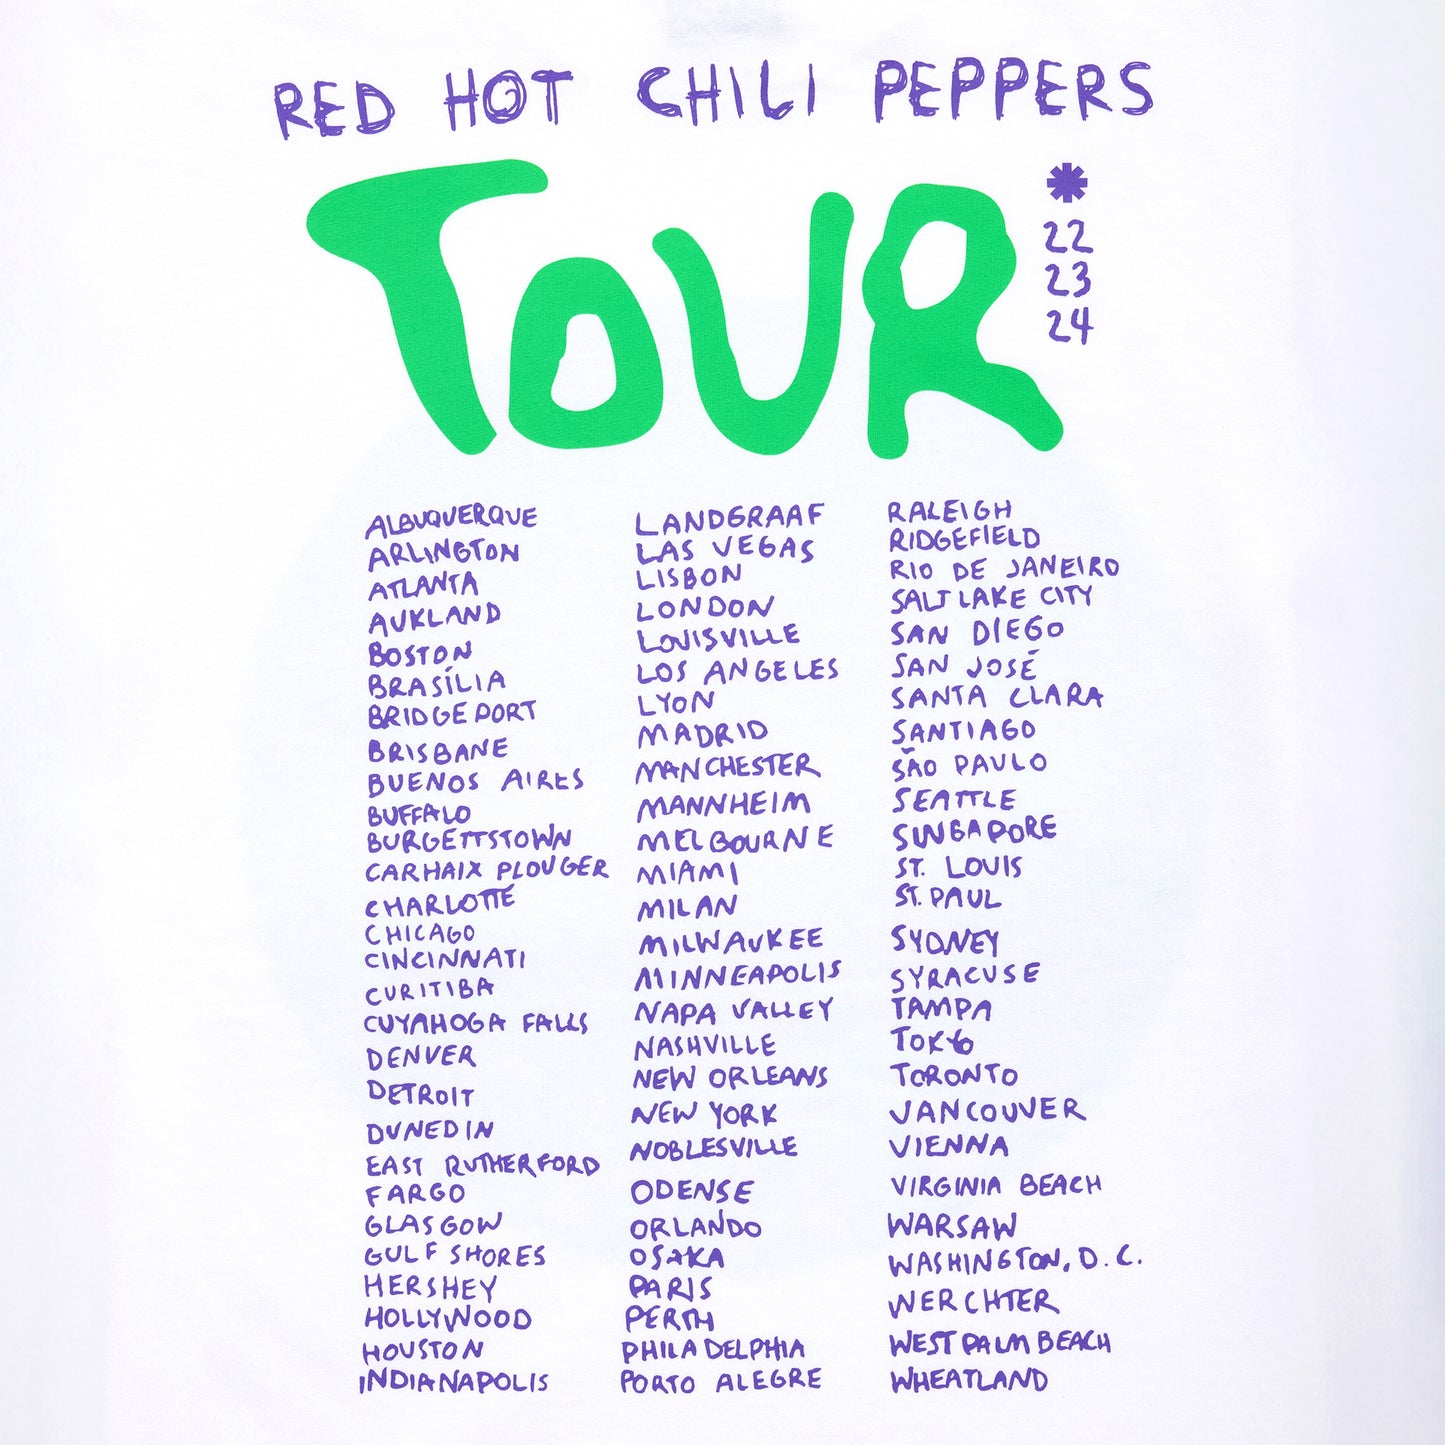 RED HOT CHILI PEPPERS
TOUR
22
23
24
ALBUQUERQUE
ARLINGTON
ATLANTA
AUKLAND
BOSTON
BRASÍLIA
BRIDGEPORT
BRISBANE
BUENOS AIRES
BUFFALO
BURGETTSTOWN
CARHAIX PLOUGER
CHARLOTTE
CHICAGO
CINCINNATI
CURITIBA
CUYAHOGA FALLS
DENVER
DETROIT
DUNEDIN
EAST RUTHERFORD
FARGO
GLASGOW
GULF SHORES
HERSHEY
HOLLYWOOD
HOUSTON
INDIANAPOLIS
LANDGRAAF
LAS VEGAS
LISBON
LONDON
LOUISVILLE
LOS ANGELES
LYON
MADRID
MANCHESTER
MANNHEIM
MELBOURNE
MIAMI
MILAN
MILWAUKEE
MINNEAPOLIS
NAPA VALLEY
NASHVILLE
NEW ORLEANS
NEW YORK
NOBLESVILLE
ODENSE
ORLANDO
OSAKA
PARIS
PERTH
PHILADELPHIA
PORTO ALEGRE
RALEIGH
RIDGEFIELD
RIO DE JANEIRO
SALT LAKE CITY
SAN DIEGO
SAN JOSÉ
SANTA CLARA
SANTIAGO
SÃO PAULO
SEATTLE
SINGAPORE
ST. LOUIS
ST. PAUL
SYDNEY
SYRACUSE
TAMPA
TOKYO
TORONTO
VANCOUVER
VIENNA
VIRGINIA BEACH
WARSAW
WASHINGTON, D.C.
WERCHTER
WEST PALM BEACH
WHEATLAND